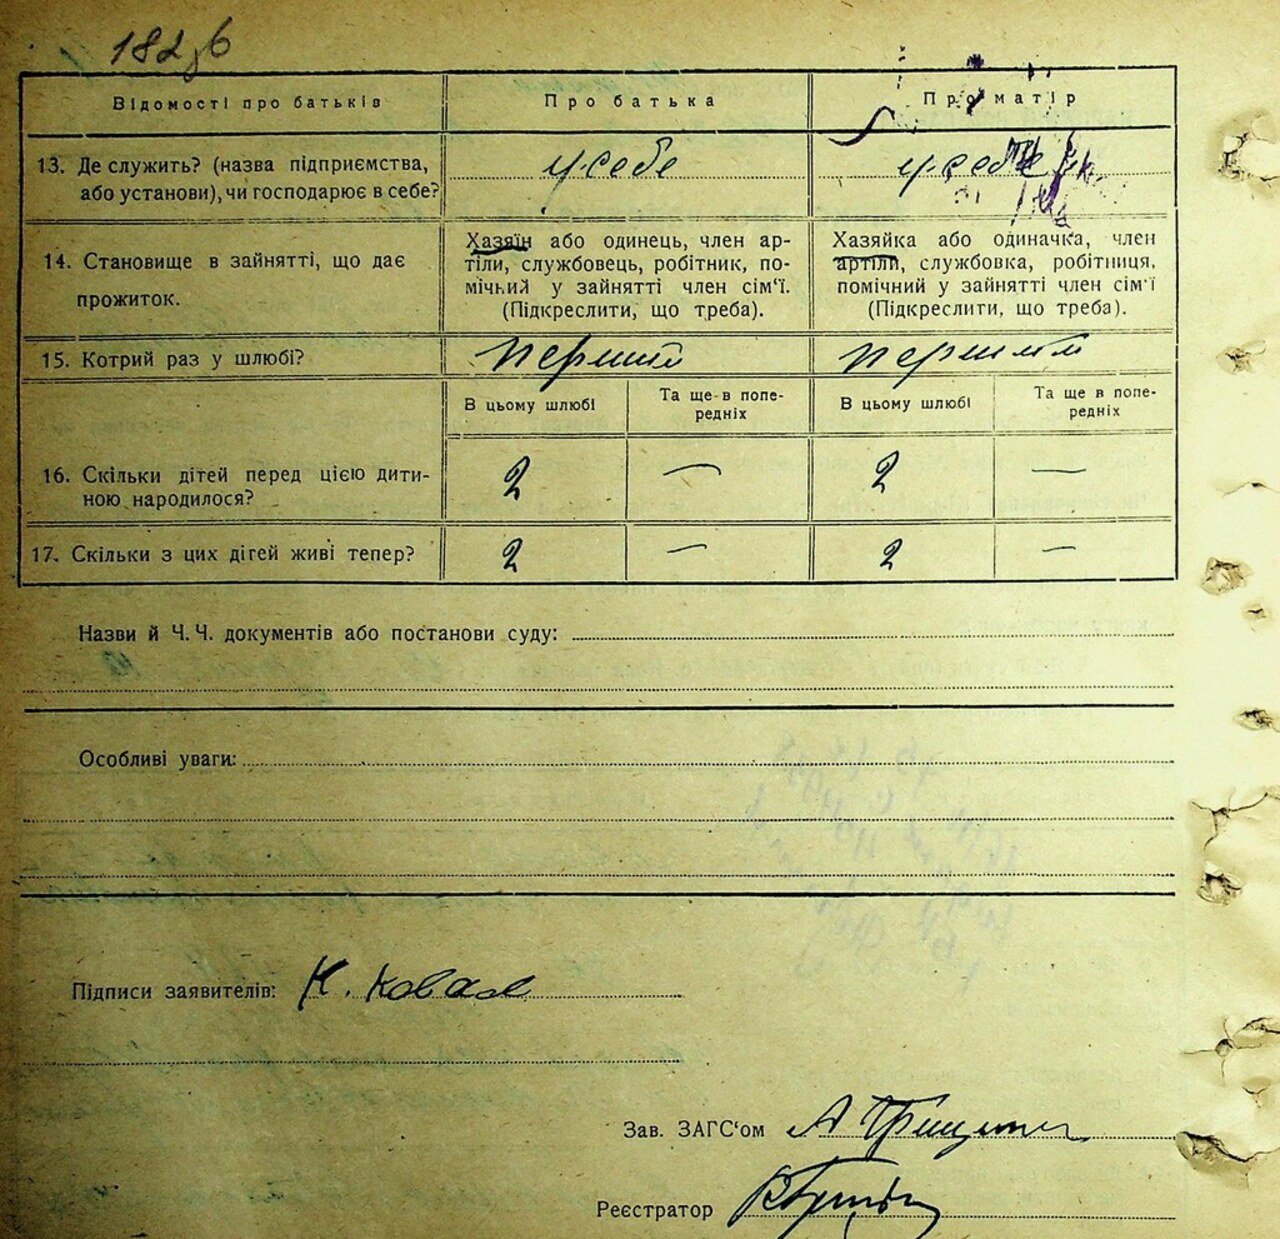 182 зв
Відомості про батьків
Про батька
Про матір
13. Де служить? (назва підприємства,
або установи), чи господарює в себе?
у себе
у себе
14. Становище в зайнятті, що дає
прожиток.
Хазяїн або одинець, член ар-
тіли, службовець, робітник, по-
мічний у зайнятті член сім'ї.
(Підкреслити, що треба).
Хазяйка або одиначка, член
артіли, службовка, робітниця,
помічний у зайнятті член сім'ї
(Підкреслити, що треба).
15. Котрий раз у шлюбі?
перший
перший
В цьому шлюбі
Та ще в попе-
редніх
В цьому шлюбі
Та ще в попе-
редніх
16. Скільки дітей перед цією дити-
ною народилося?
2 —
2 —
17. Скільки з цих дітей живі тепер?
2 —
2 —
Назви й Ч. Ч. документів або постанови суду:
Особливі уваги:
Підписи заявителів: К. Ковал
Зав. ЗАГС'ом
Реєстратор